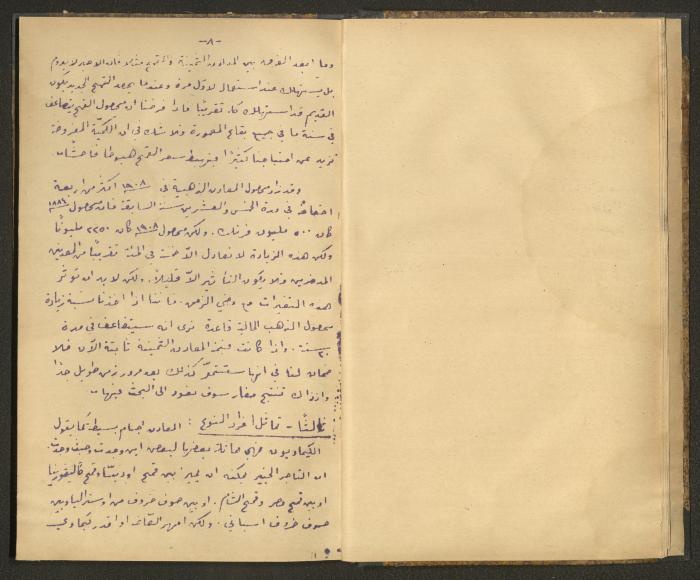 -٨-
وما ابعد الفرق بين المعادن الثمينة والقمح مثلا فان الاخير لا يدوم
بل يستهلك عند استعماله لاول مرة وعندما يحصد القمح الجديد يكون
القديم قد استهلك كله تقريبًا فاذا فرضنا ان محصول القمح يتضاعف
في سنة ما في جميع بقاع المعمورة فلا شك في ان الكمية المفروضة
تزيد عن احتياجنا كثيرًا فيهبط سعر القمح هبوطا فاحشا.
وقد زاد محصول المعادن الذهبية في ١٩٠٨ اكثر من اربعة
اضعاف في مدة الخمس والعشرين سنة السابقة فان محصول ١٨٨٦
كان ٥٠٠ مليون فرنك. ولكن محصول ١٩٠٨ كان ٢٢٥٠ مليونًا
ولكن هذه الزيادة لا تعادل الا في المئة تقريبًا من المعدنين
المدخرين فلا يكون التأثير الا قليلاً. ولكن لابد ان تؤثر
هذه التغيرات مع مضي الزمن. فاننا اذا اخذنا نسبة زيادة
محصول الذهب الحالية قاعدة نرى انه سيتضاعف في مدة
٣٠ سنة. واذا كانت قيمة المعادن الثمينة ثابتة الآن فلا
ضمان لنا في انها ستستمر كذلك بعد مرور زمن طويل جدًا
واذ ذاك تنتج مضار سوف نعود الى البحث فيها.
ثالثًا - تماثل افراد النوع : المعادن اجسام بسيطة كما يقول
الكيماويون فهي مماثلة بعضها لبعض اين وجدت وحيث وجدت.
ان التاجر الخبير يمكنه ان يميز بين قمح اوديسا وقمح كاليفورنيا
او بين قمح مصر وقمح الشام. او بين صوف خروف من اوستراليا وبين
صوف خروف اسباني. ولكن امهر الصاغة او اقدر كيماوي